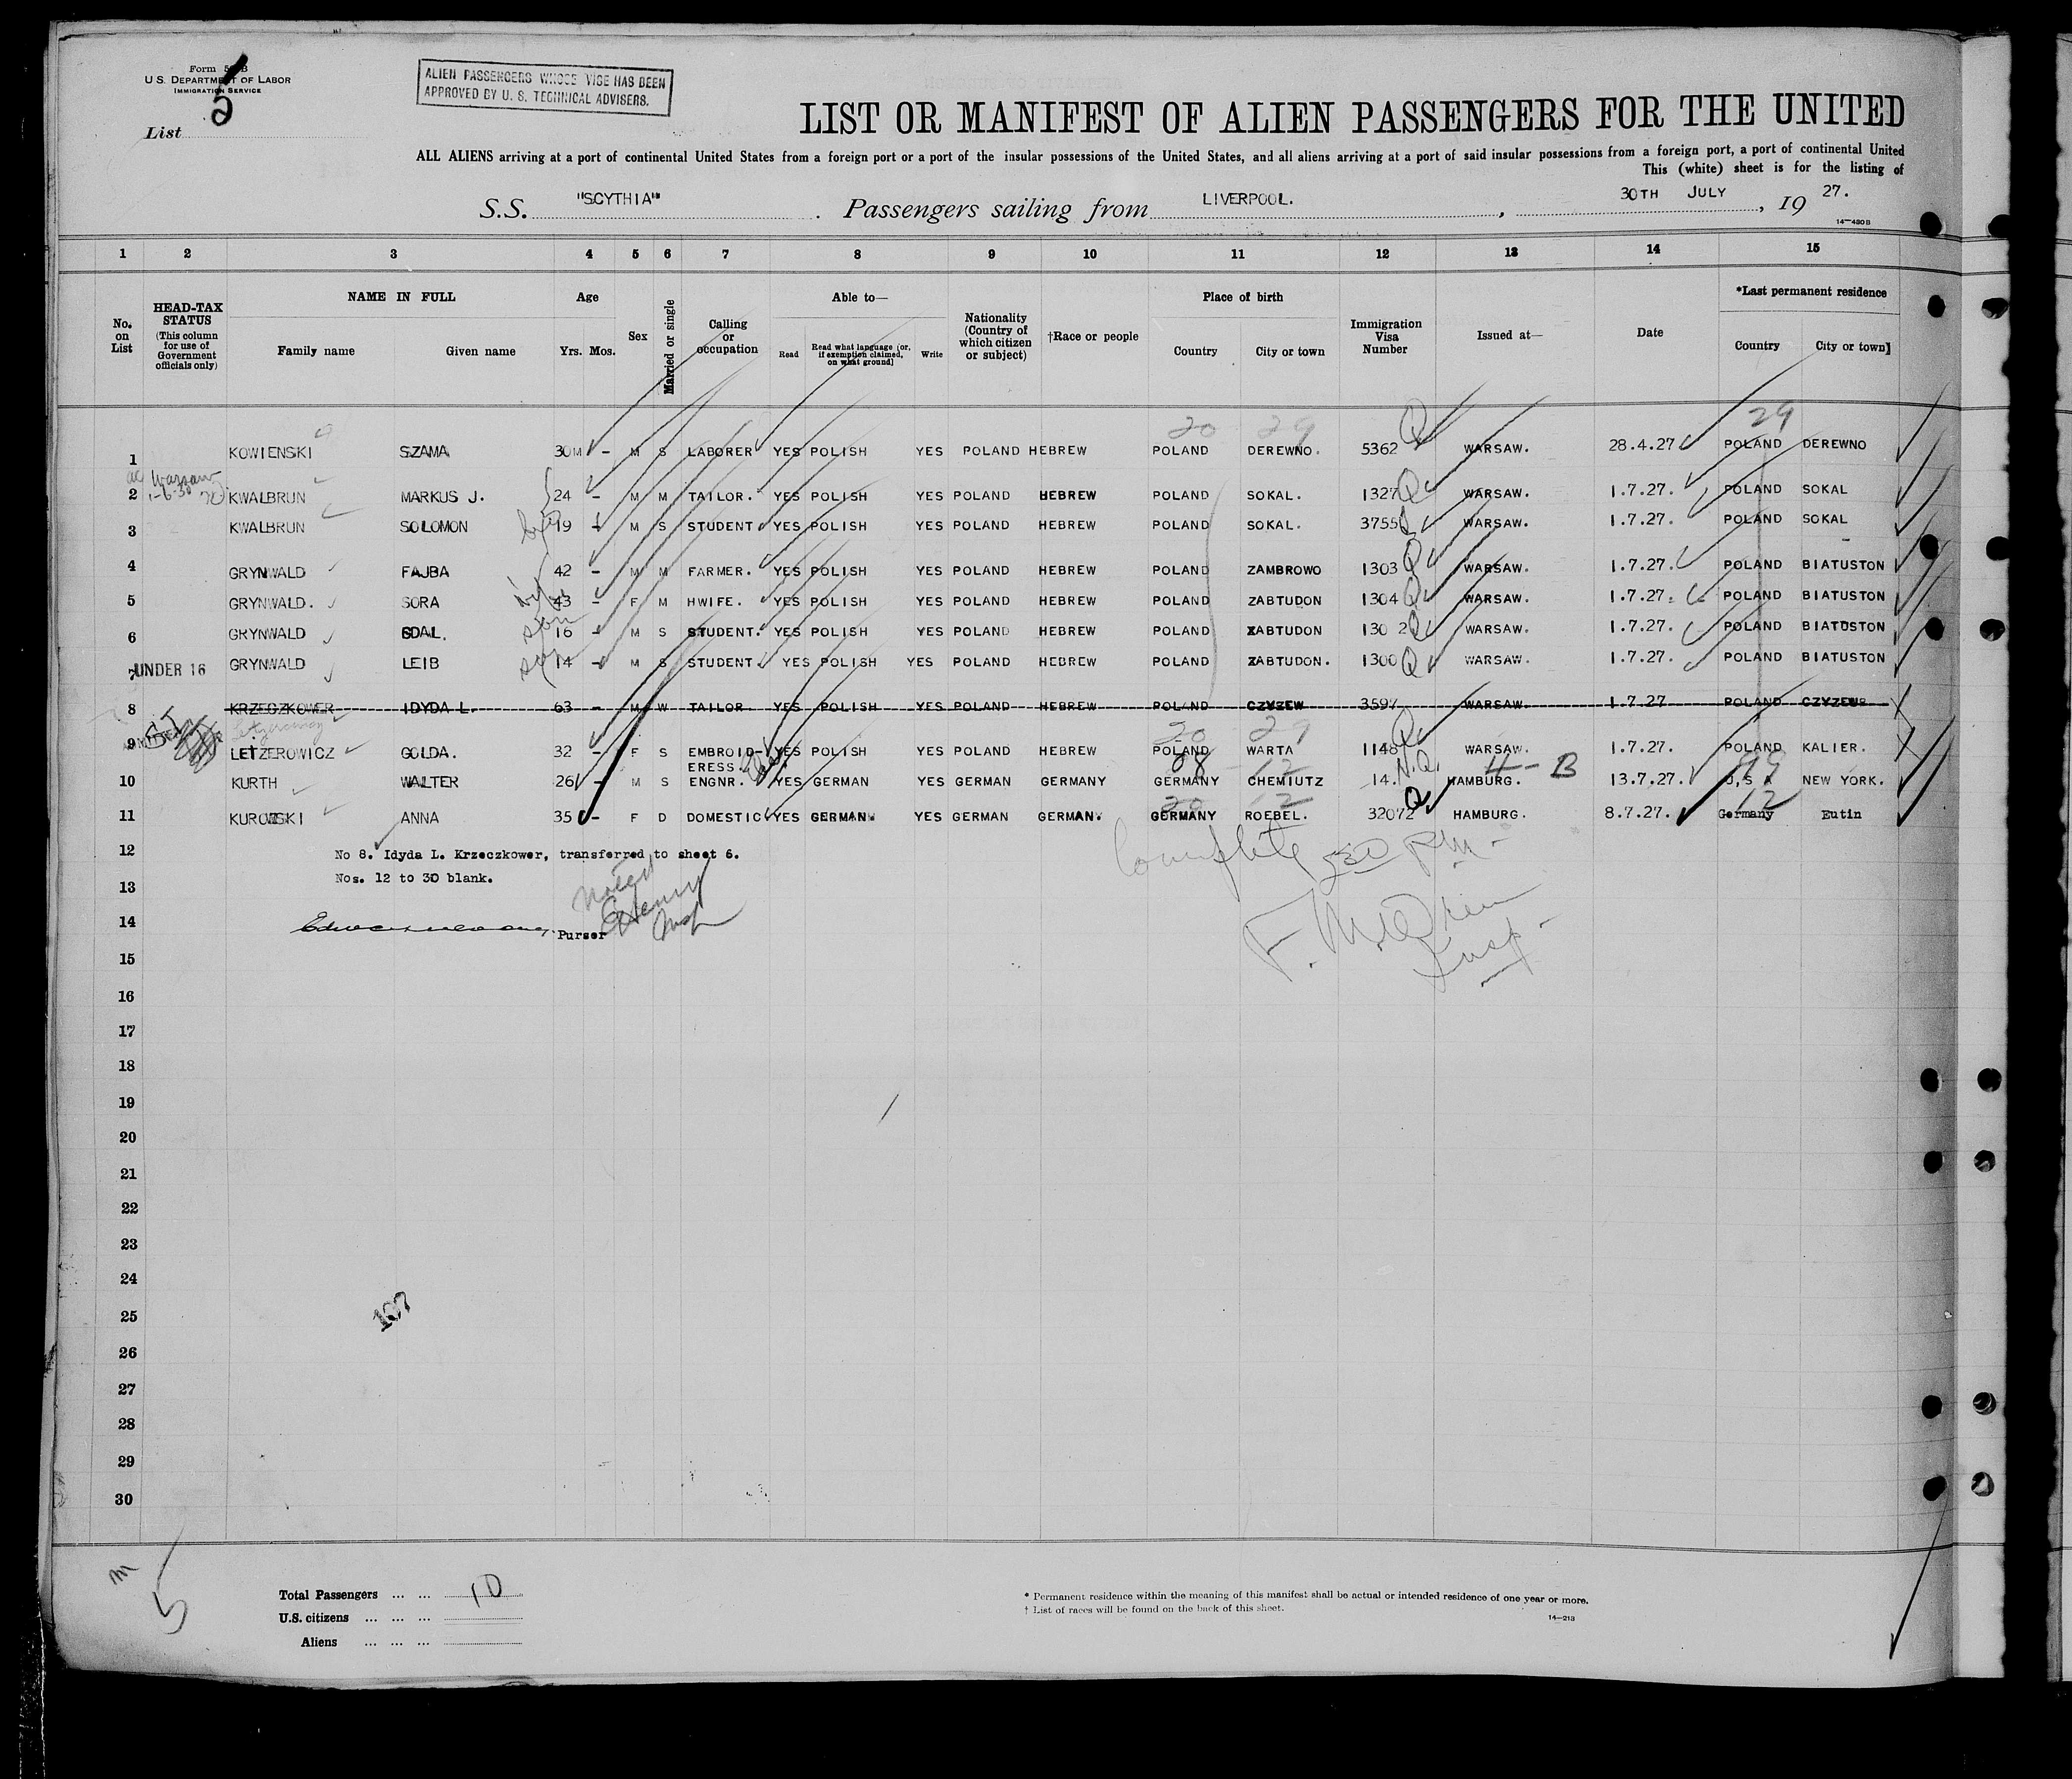 Form 5 B
U. S. DEPARTMENT OF LABOR
IMMIGRATION SERVICE
List 5
ALIEN PASSENGERS WHOSE VISE HAS BEEN
APPROVED BY U. S. TECHNICAL ADVISERS.
LIST OR MANIFEST OF ALIEN PASSENGERS FOR THE UNITED
ALL ALIENS arriving at a port of continental United States from a foreign port or a port of the insular possessions of the United States, and all aliens arriving at a port of said insular possessions from a foreign port, a port of continental United
This (white) sheet is for the listing of
S.S. "SCYTHIA" . Passengers sailing from LIVERPOOL. , 30TH JULY , 19 27.
14—480 B
1 2 3 4 5 6 7 8 9 10 11 12 13 14 15
No. on List
HEAD-TAX STATUS (This column for use of Government officials only)
NAME IN FULL
Family name Given name
Age
Yrs. Mos.
Sex
Married or single
Calling or occupation
Able to—
Read Read what language [or, if exemption claimed, on what ground] Write
Nationality (Country of which citizen or subject)
†Race or people
Place of birth
Country City or town
Immigration Visa Number
Issued at—
Date
*Last permanent residence
Country City or town]
20 29 29
1 KOWIENSKI SZAMA 30 M - M S LABORER YES POLISH YES POLAND HEBREW POLAND DEREWNO. 5362 Q WARSAW. 28.4.27 POLAND DEREWNO
Warsaw
2 KWALBRUN MARKUS J. 24 - M M TAILOR. YES POLISH YES POLAND HEBREW POLAND SOKAL. 1327 Q WARSAW. 1.7.27. POLAND SOKAL
3 KWALBRUN SOLOMON 19 - M S STUDENT YES POLISH YES POLAND HEBREW POLAND SOKAL. 3755 Q WARSAW. 1.7.27. POLAND SOKAL
4 GRYNWALD FAJBA 42 - M M FARMER. YES POLISH YES POLAND HEBREW POLAND ZAMBROWO 1303 Q WARSAW. 1.7.27. POLAND BIATUSTON
5 GRYNWALD. SORA wife 43 - F M HWIFE. YES POLISH YES POLAND HEBREW POLAND ZABTUDON 1304 Q WARSAW. 1.7.27. POLAND BIATUSTON
6 GRYNWALD son 16 - M S STUDENT. YES POLISH YES POLAND HEBREW POLAND ZABTUDON 130 2 Q WARSAW. 1.7.27. POLAND BIATUSTON
7 UNDER 16 GRYNWALD LEIB son 14 - M S STUDENT. YES POLISH YES POLAND HEBREW POLAND ZABTUDON. 1300 Q WARSAW. 1.7.27. POLAND BIATUSTON
8 KRZECZKOWER IDYDA L. 63 - M W TAILOR YES POLISH YES POLAND HEBREW POLAND CZYZEW 3597 WARSAW. 1.7.27 POLAND CZYZEW
20 29
9 LEIZEROWICZ GOLDA. 32 - F S EMBROID- YES POLISH YES POLAND HEBREW POLAND WARTA 1148 Q WARSAW. 1.7.27. POLAND KALIER.
ERESS.
08 - 12 N.Q. 4 - B 99
10 KURTH WALTER 26 - M S ENGNR. YES GERMAN YES GERMAN GERMANY GERMANY CHEMIUTZ 14. HAMBURG. 13.7.27. U,S A NEW YORK.
12 Q 12
11 KUROWSKI ANNA 35 - F D DOMESTIC YES GERMAN. YES GERMAN GERMAN. GERMANY ROEBEL. 32072 HAMBURG. 8.7.27. Germany Eutin
12 No 8. Idyda L. Krzeczkower, transferred to sheet 6.
Nos. 12 to 30 blank.
Complete 530 P.M.
13
Noted
14 Purser
Insp
Insp.
15
16
17
18
19
20
21
22
23
24
25 107
26
27
28
29
30
5
Total Passengers ... ... 10
U.S. citizens ... ... ...
Aliens ... ... ...
* Permanent residence within the meaning of this manifest shall be actual or intended residence of one year or more.
† List of races will be found on the back of this sheet.
14—213